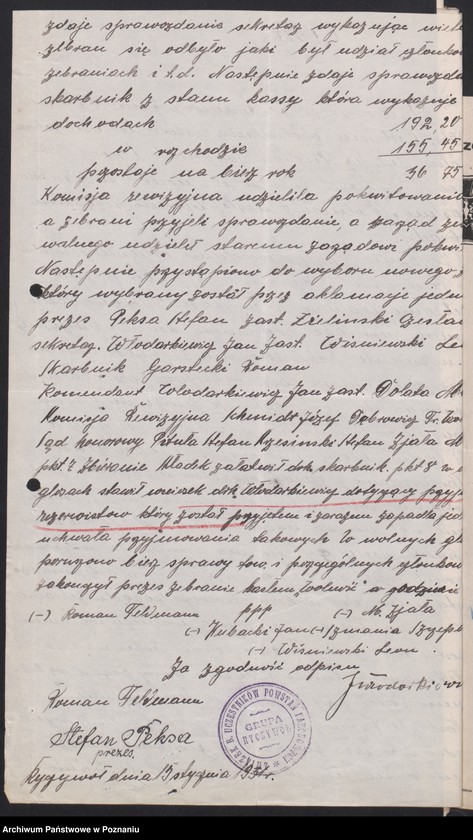 zdaje sprawozdanie sekretaz wykazując wiele
zebran się odbyło jaki był udział członków
zebraniach i t.d. Następnie zdaje sprawozda
skarbnik z stanu kassy która wykazuje
dochodach 192,20
w rozchodzie 155,45
pozostaje na bież rok 36 75
Komisja rewizyjna udzieliła pokwitowania
a zebrani przyjeli sprawozdanie, a zarząd
walnego udzielił staremu zarządowi pokwi
Następnie przystąpiono do wyboru nowego
który wybrany został przez aklamacje jedn
prezes Peksa Stefan zast. Zielinski Czesła
sekretaz. Włodarkiewicz Jan Zast. Wisniewski Leo
Skarbnik Garstecki Roman
Komendant Wlodarkiewicz Jan zast. Polata
Komisja Rewizyjna Schmidt Józef Dąbrowicz Fr.
Sąd honorowy Stefan Krzesinski Stefan Zjała M
pkt 7 Zbiranie składek załatwił drh. skarbnik. pkt 8 w
głosach stawił wniosek drh. Włodarkiewicz dotyczący przyj
rezerwistow który został przyjetem i zarazem zapadła jed
uchwała przyjmowania takowych Po wolnych gł
poruszono bierz sprawy tow. i poszczególnych członkow
zakonczył prezes zebranie hasłem "Wolność" o godzinie
(-) Roman Feldmann ppp (-) M. Zjała
(-) Kubacki Jan (-) Szmania Szczep
(-) Wisniewski Leon.
Za zgodność odpisu
Roman Feldmann
Stefan Peksa
prezes.
ZWIĄZEK B. UCZESTNIKÓW POWSTAŃ NARODOWYCH
GRUPA
RYCZYWÓŁ
Ryczywół dnia 15 stycznia 193
Archiwum Państwowe w Poznaniu